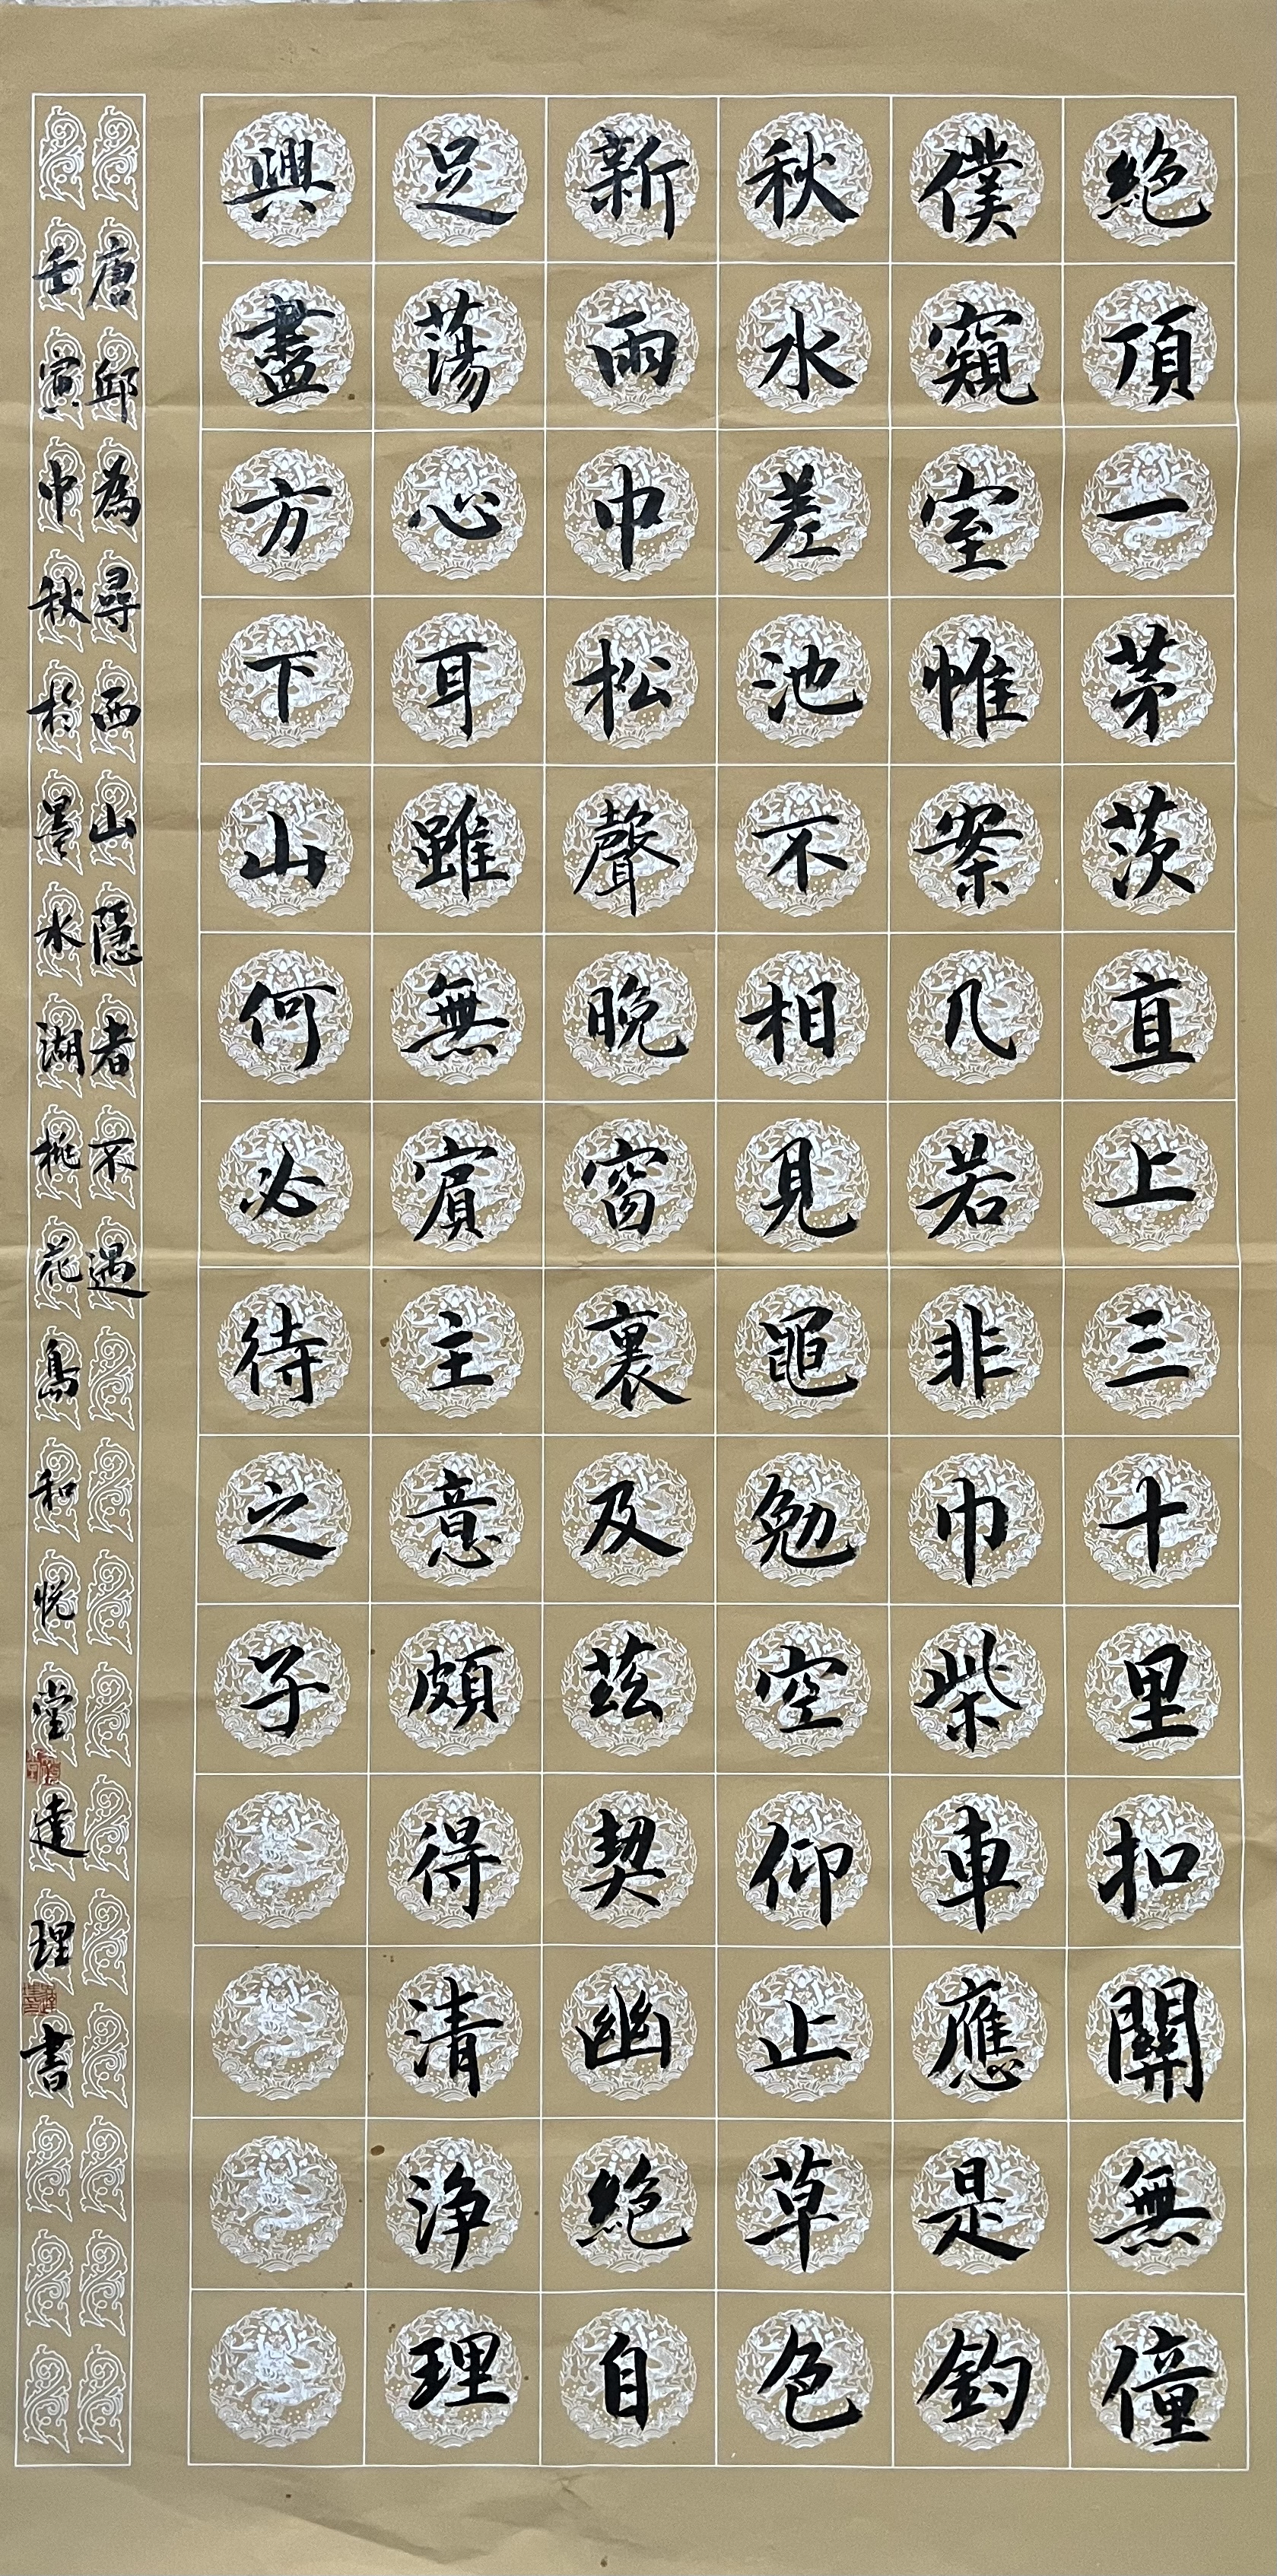 絶頂一茅茨直上三十里扣關無僮
僕窺室惟案几若非巾柴車應是釣
秋水差池不相見黽勉空仰止草色
新雨中松聲晚窗裏及茲契幽絶自
足蕩心耳雖無賓主意頗得清浄理
興盡方下山何必待之子
唐邱為尋西山隱者不遇
壬寅中秋於墨水湖桃花島和悦堂達理書